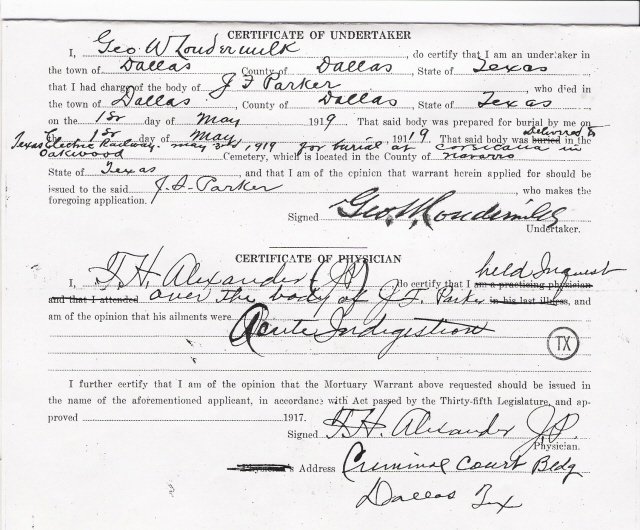 CERTIFICATE OF UNDERTAKER
I, Geo W Loudermilk, do certify that I am an undertaker in
the town of Dallas, County of Dallas, State of Texas
that I had charge of the body of J F Parker, who died in
the town of Dallas, County of Dallas, State of Texas
on the 1st day of May 1919 That said body was prepared for burial by me on
1st day of May 191 19 That said body was buried in the Delivered to
Texas Electric Railway. May 3rd, 1919 for burial at Corsicana in
Oakwood Cemetery, which is located in the County of Navarro
State of Texas, and that I am of the opinion that warrant herein applied for should be
issued to the said J. F. Parker, who makes the
foregoing application.
Signed Geo. W. Loudermilk
Undertaker.
CERTIFICATE OF PHYSICIAN
I, T. H. Alexander (JP) do certify that I am a practicing physician held Inquest
and that I attended over the body of J. F. Parker in his last illness, and
am of the opinion that his ailments were
Acute Indigestion
TX
I further certify that I am of the opinion that the Mortuary Warrant above requested should be issued in
the name of the aforementioned applicant, in accordance with Act passed by the Thirty-fifth Legislature, and ap-
proved 1917.
Signed T. H. Alexander J.P.
Physician.
Physician's Address Criminal Court Bldg
Dallas Tex